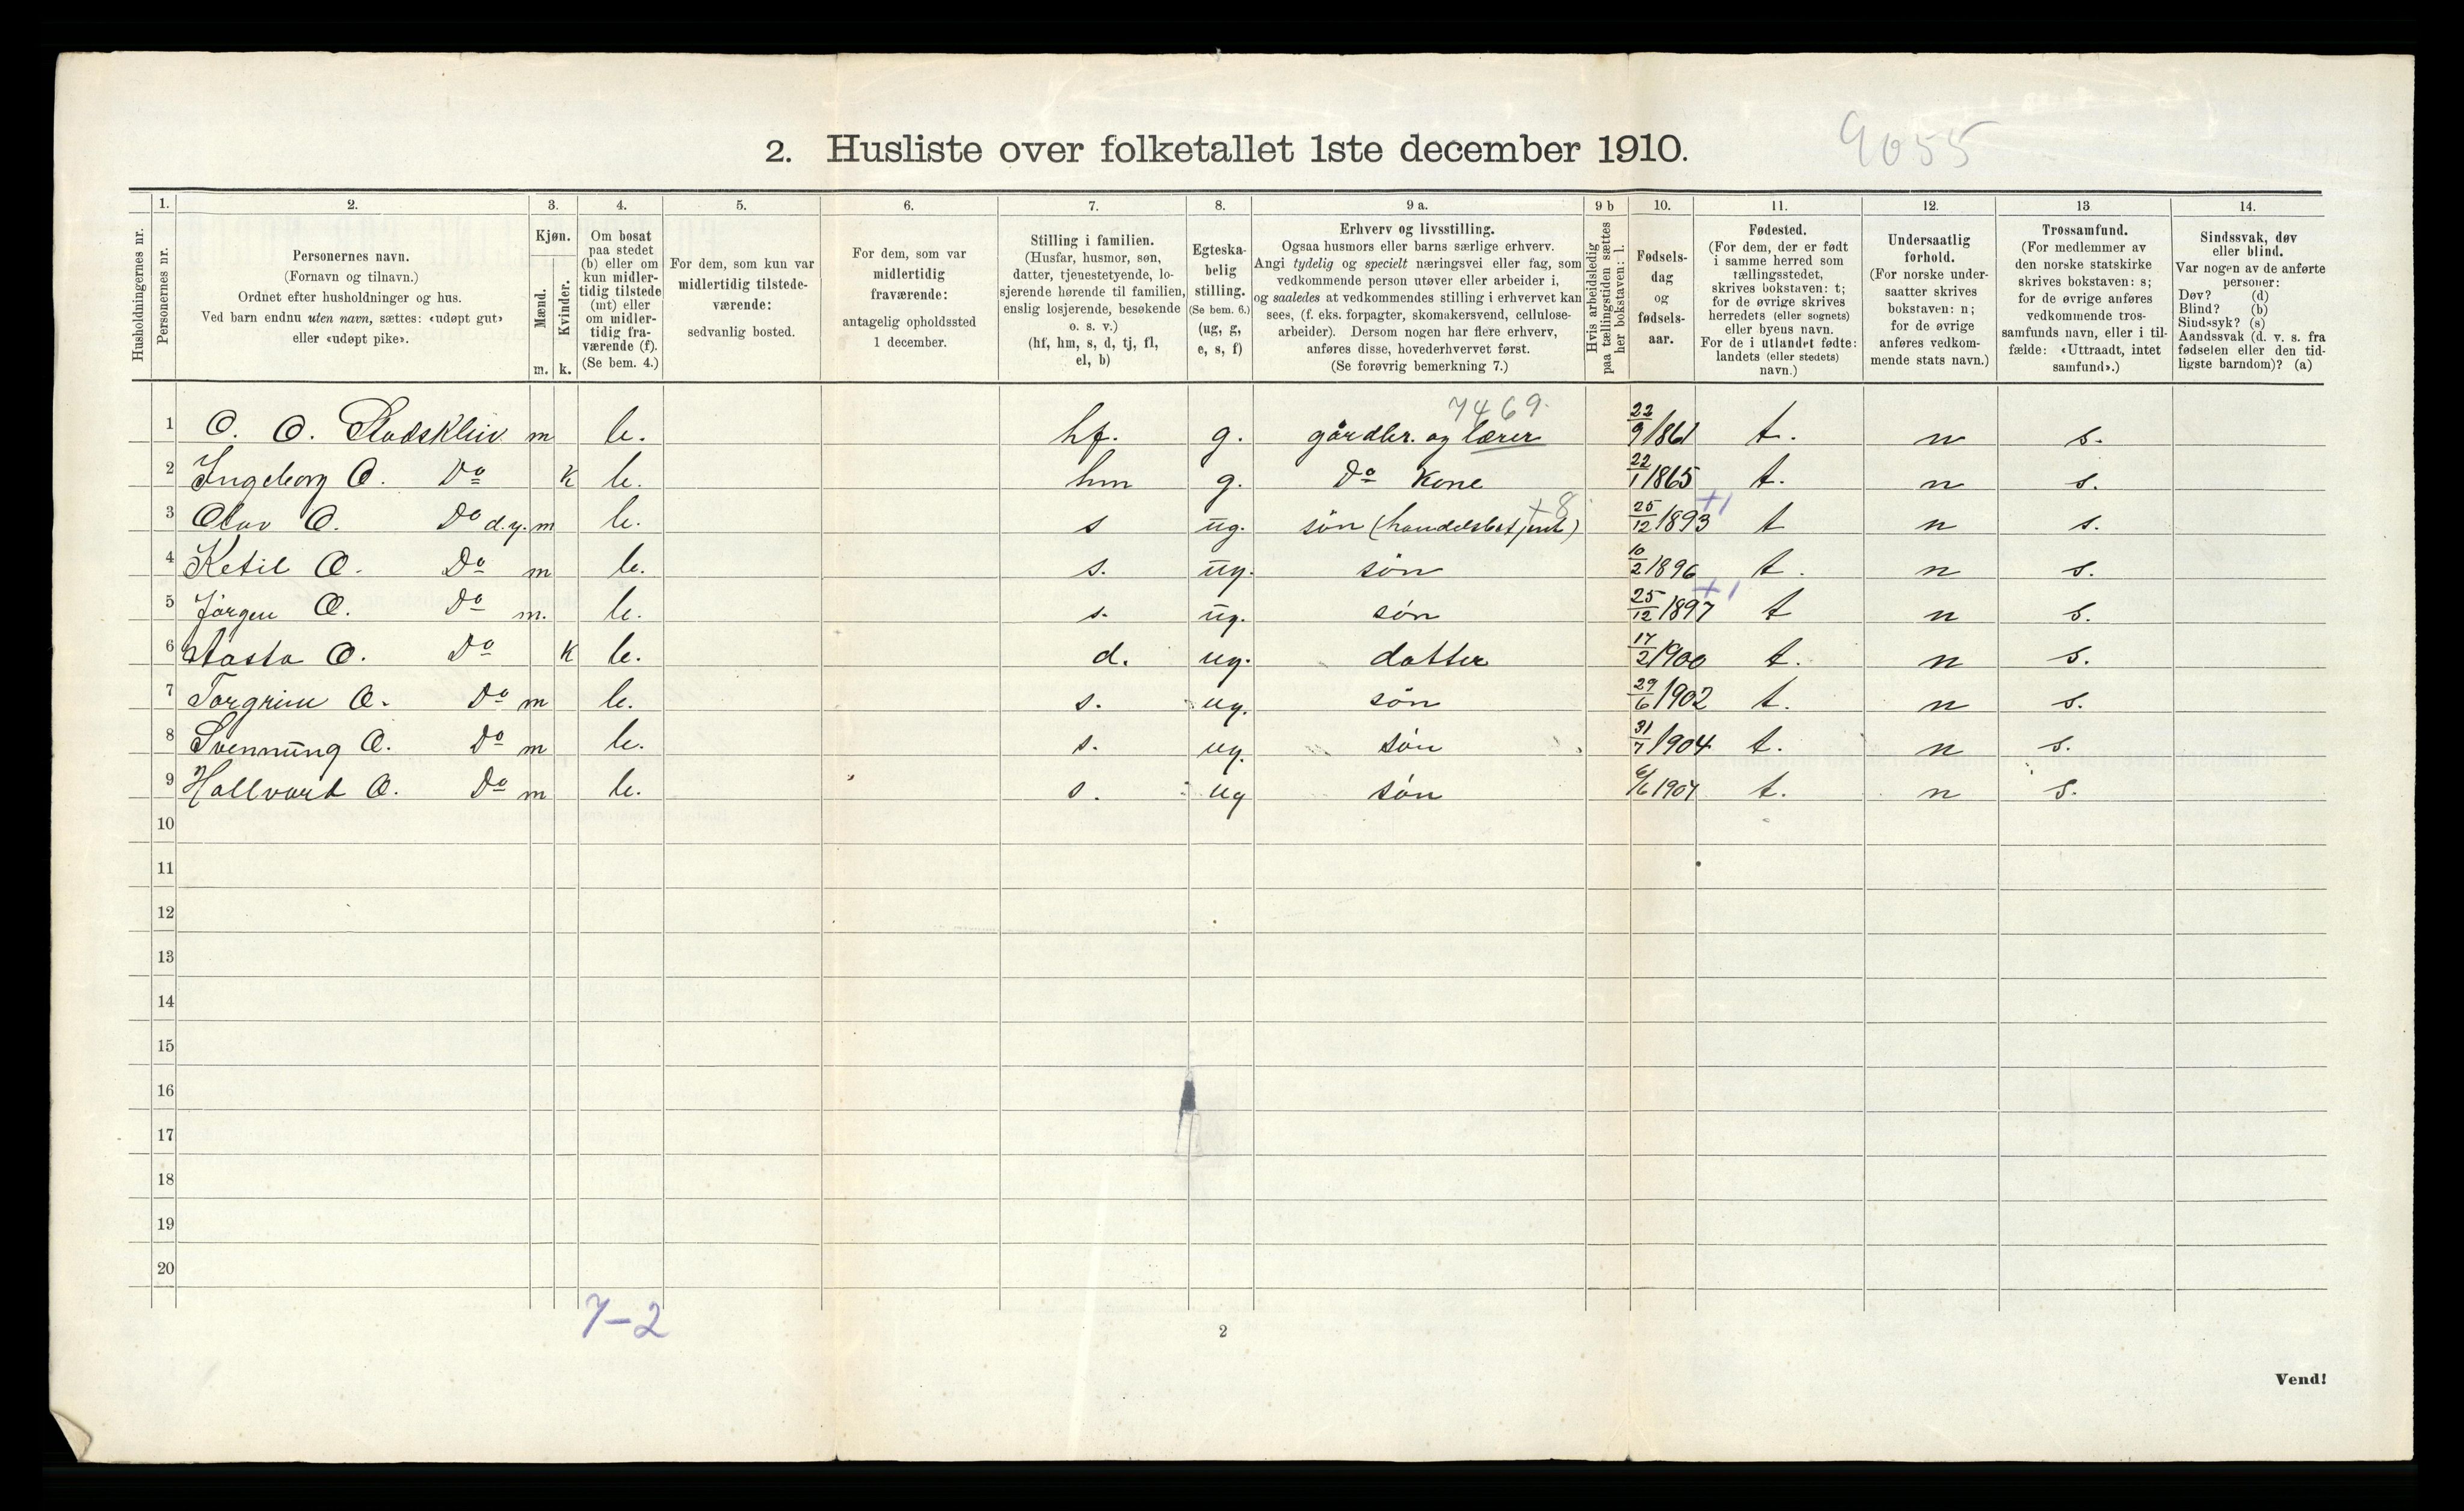 2. Husliste over folketallet 1ste december 1910.
9055
Husholdningernes nr.
1.
Personernes nr.
2.
Personernes navn.
(Fornavn og tilnavn.)
Ordnet efter husholdninger og hus.
Ved barn endnu uten navn, sættes: «udøpt gut»
eller «udøpt pike».
3.
Kjøn.
Mænd.
Kvinder.
m. k.
4.
Om bosat
paa stedet
(b) eller om
kun midler-
tidig tilstede
(mt) eller
om midler-
tidig fra-
værende (f).
(Se bem. 4.)
5.
For dem, som kun var
midlertidig tilstede-
værende:
sedvanlig bosted.
6.
For dem, som var
midlertidig
fraværende:
antagelig opholdssted
1 december.
7.
Stilling i familien.
(Husfar, husmor, søn,
datter, tjenestetyende, lo-
sjerende hørende til familien,
enslig losjerende, besøkende
o. s. v.)
(hf, hm, s, d, tj, fl,
el, b)
8.
Egteska-
belig
stilling.
(Se bem. 6.)
(ug, g,
e, s, f)
9 a.
Erhverv og livsstilling.
Ogsaa husmors eller barns særlige erhverv.
Angi tydelig og specielt næringsvei eller fag, som
vedkommende person utøver eller arbeider i,
og saaledes at vedkommendes stilling i erhvervet kan
sees, (f. eks. forpagter, skomakersvend, cellulose-
arbeider). Dersom nogen har flere erhverv,
anføres disse, hovederhvervet først.
(Se forøvrig bemerkning 7.)
9 b
Hvis arbeidsledig
paa tællingstiden sættes
her bokstaven: l.
10.
Fødsels-
dag
og
fødsels-
aar.
11.
Fødested.
(For dem, der er født
i samme herred som
tællingsstedet,
skrives bokstaven: t;
for de øvrige skrives
herredets (eller sognets)
eller byens navn.
For de i utlandet fødte:
landets (eller stedets)
navn.)
12.
Undersaatlig
forhold.
(For norske under-
saatter skrives
bokstaven: n;
for de øvrige
anføres vedkom-
mende stats navn.)
13
Trossamfund.
(For medlemmer av
den norske statskirke
skrives bokstaven: s;
for de øvrige anføres
vedkommende tros-
samfunds navn, eller i til-
fælde: «Uttraadt, intet
samfund».)
14.
Sindssvak, døv
eller blind.
Var nogen av de anførte
personer:
Døv? (d)
Blind? (b)
Sindssyk? (s)
Aandssvak (d. v. s. fra
fødselen eller den tid-
ligste barndom)? (a)
7469.
1 O. O. Stadskleiv m b. hf. g. gårdbr. og lærer 22/9 1861 t. n s.
2 Ingeborg O. Do k b. hm g. Do Kone 22/1 1865 t. n s.
+8 +1
3 Olav O. Do d.y. m b. s ug. søn (handelsbetjent) 25/12 1893 t n s.
4 Ketil O. Do m b. s. ug. søn 10/2 1896 t. n s.
+1
5 Jörgen O. Do m. b. s. ug. søn 25/12 1897 t n s.
6 Aasta O. Do k b. d. ug. datter 17/2 1900 t. n s.
7 Torgrim O. Do m b. s. ug. søn 29/6 1902 t. n s.
8 Svennung O. Do m b. s. ug. søn 31/7 1904 t. n s.
9 Hallvard O. Do m b. s. ug søn 6/6 1907 t. n s.
10
11
12
13
14
15
16
17
18
19
20
7–2
2
Vend!